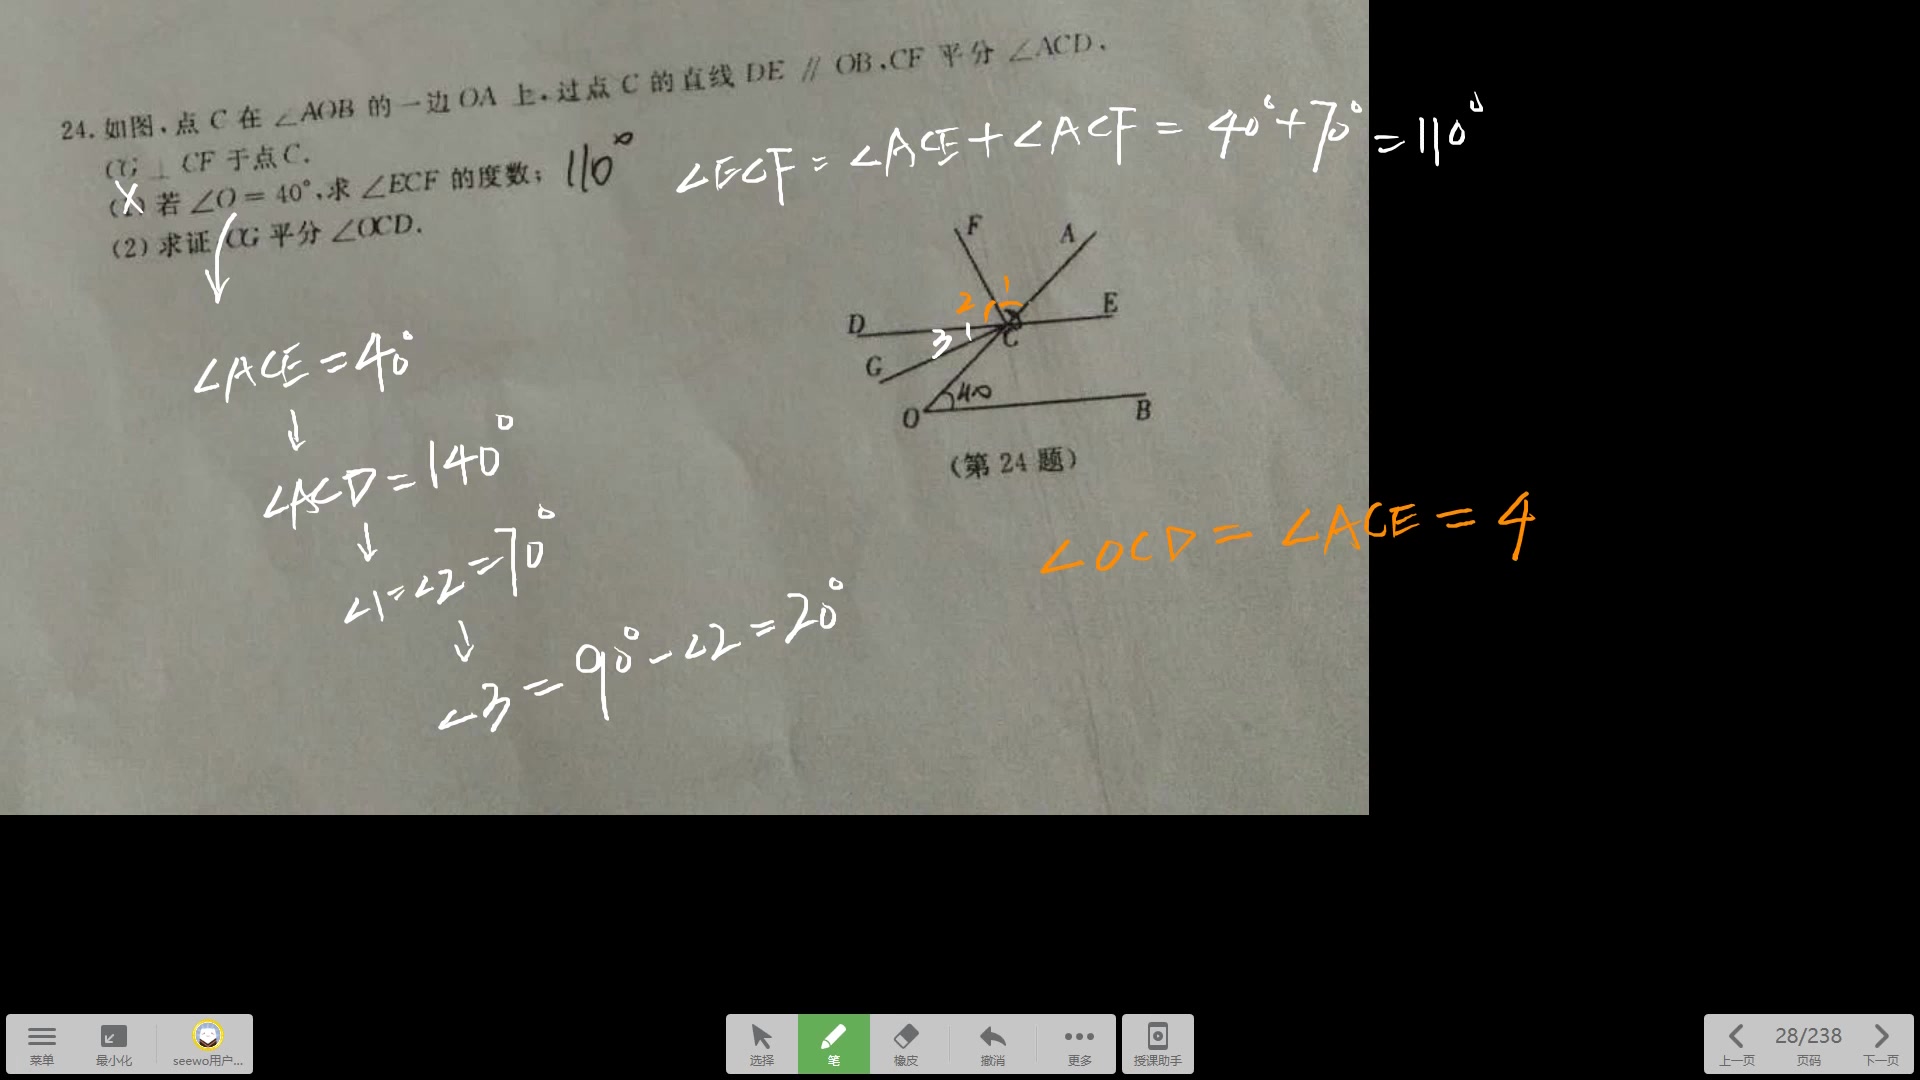 24. 如图,点 C 在 ∠AOB 的一边 OA 上,过点 C 的直线 DE ∥ OB,CF 平分 ∠ACD,
CG ⊥ CF 于点 C.
(1) 若 ∠O = 40°,求 ∠ECF 的度数; 110°
(2) 求证 CG 平分 ∠OCD.
∠ECF = ∠ACE + ∠ACF = 40° + 70° = 110°
F A
2 1
D E
3 C
G
40
O B
(第 24 题)
∠ACE = 40°
↓
∠ACD = 140°
↓
∠1 = ∠2 = 70°
↓
∠3 = 90° - ∠2 = 20°
∠OCD = ∠ACE = 4
菜单 最小化 seewo用户...
选择 笔 橡皮 撤消 更多 授课助手
28/238
上一页 页码 下一页